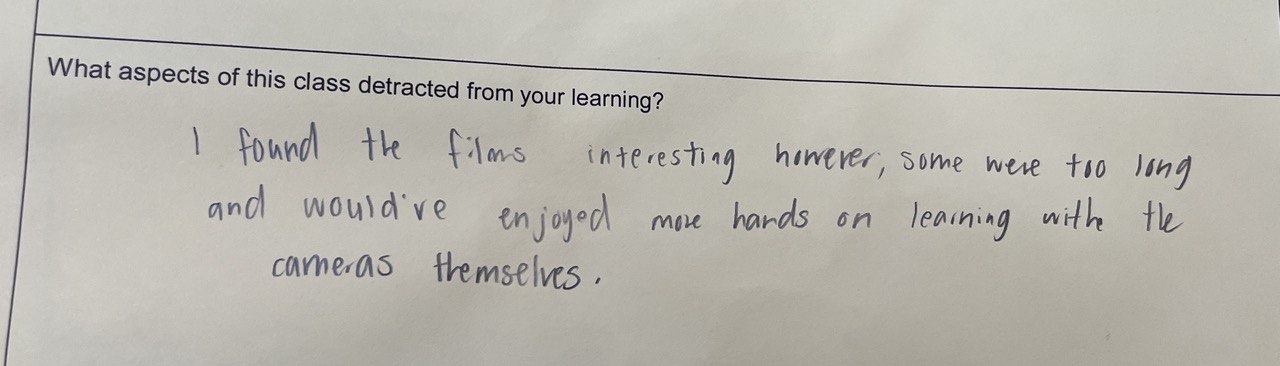 What aspects of this class detracted from your learning?
I found the films interesting however, some were too long
and would've enjoyed more hands on learning withe the
cameras themselves.